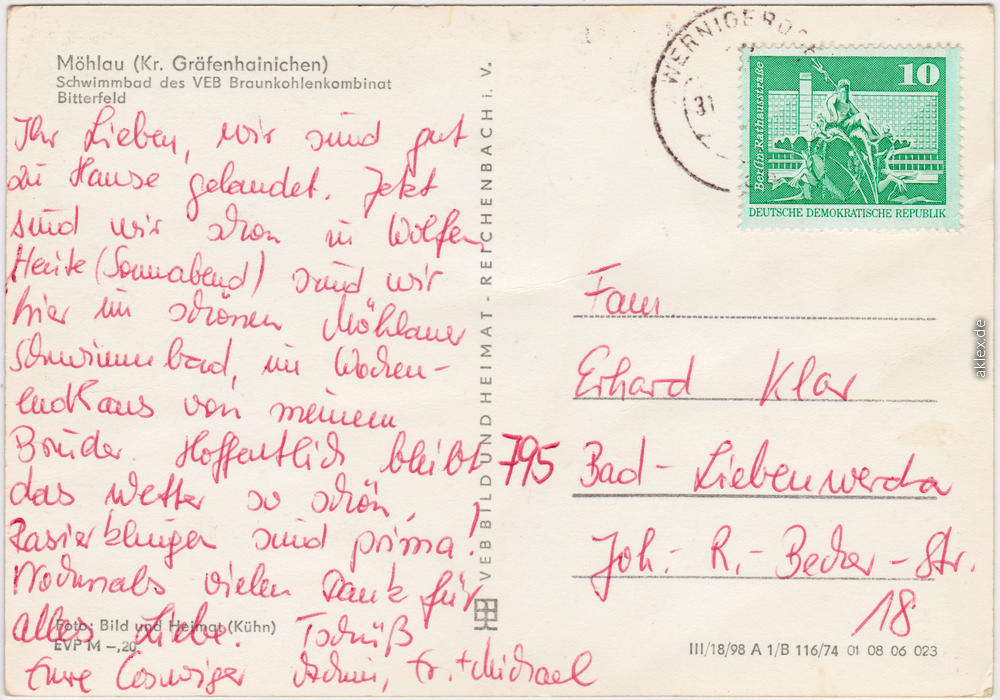 Möhlau (Kr. Gräfenhainichen)
Schwimmbad des VEB Braunkohlenkombinat
Bitterfeld
Ihr Lieben, wir sind gut
zu Hause gelandet. Jetzt
sind wir schon in Wolfen
Heute (Sonnabend) sind wir
hier im schönen Möhlauer
Schwimmbad, im Wochen-
endhaus von meinem
Bruder. Hoffentlich bleibt
das Wetter so schön,
Rasierklingen sind prima!
Nochmals vielen Dank für
alles Liebe. Tschüß
Eure Coswiger
+ Michael
Foto: Bild und Heimat (Kühn)
EVP M -,20
VEB BILD UND HEIMAT - REICHENBACH i. V.
WERNIGERODE
31
10
Berlin-Rathausstraße
DEUTSCHE DEMOKRATISCHE REPUBLIK
Fam.
Erhard Klar
795 Bad-Liebenwerda
Joh.-R.-Becher-Str.
18
III/18/98 A 1/B 116/74 01 08 06 023
aklex.de